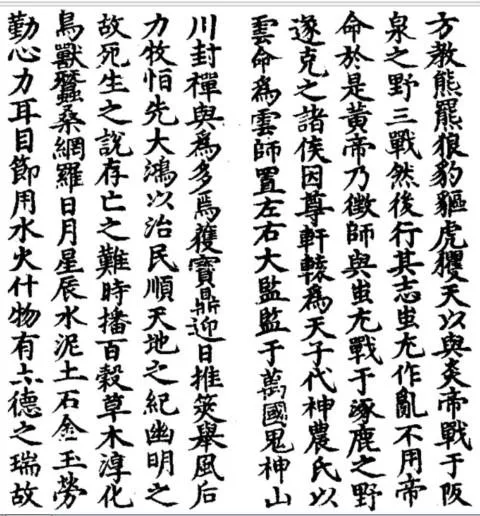 方教熊羆狼豹貙虎玃天以與炎帝戰于阪
泉之野三戰然後行其志虫尤作亂不用帝
命於是黃帝乃徵師與虫尤戰于涿鹿之野
遂克之諸侯因尊軒轅為天子代神農氏以
雲命為雲師置左右大監監于萬國鬼神山
川封禪與為多焉獲寶鼎迎日推筴舉風后
力牧怕先大鴻以治民順天地之紀幽明之
故死生之說存亡之難時播百穀草木淳化
鳥獸蠶桑網羅日月星辰水泥土石金玉勞
勤心力耳目節用水火什物有土德之瑞故